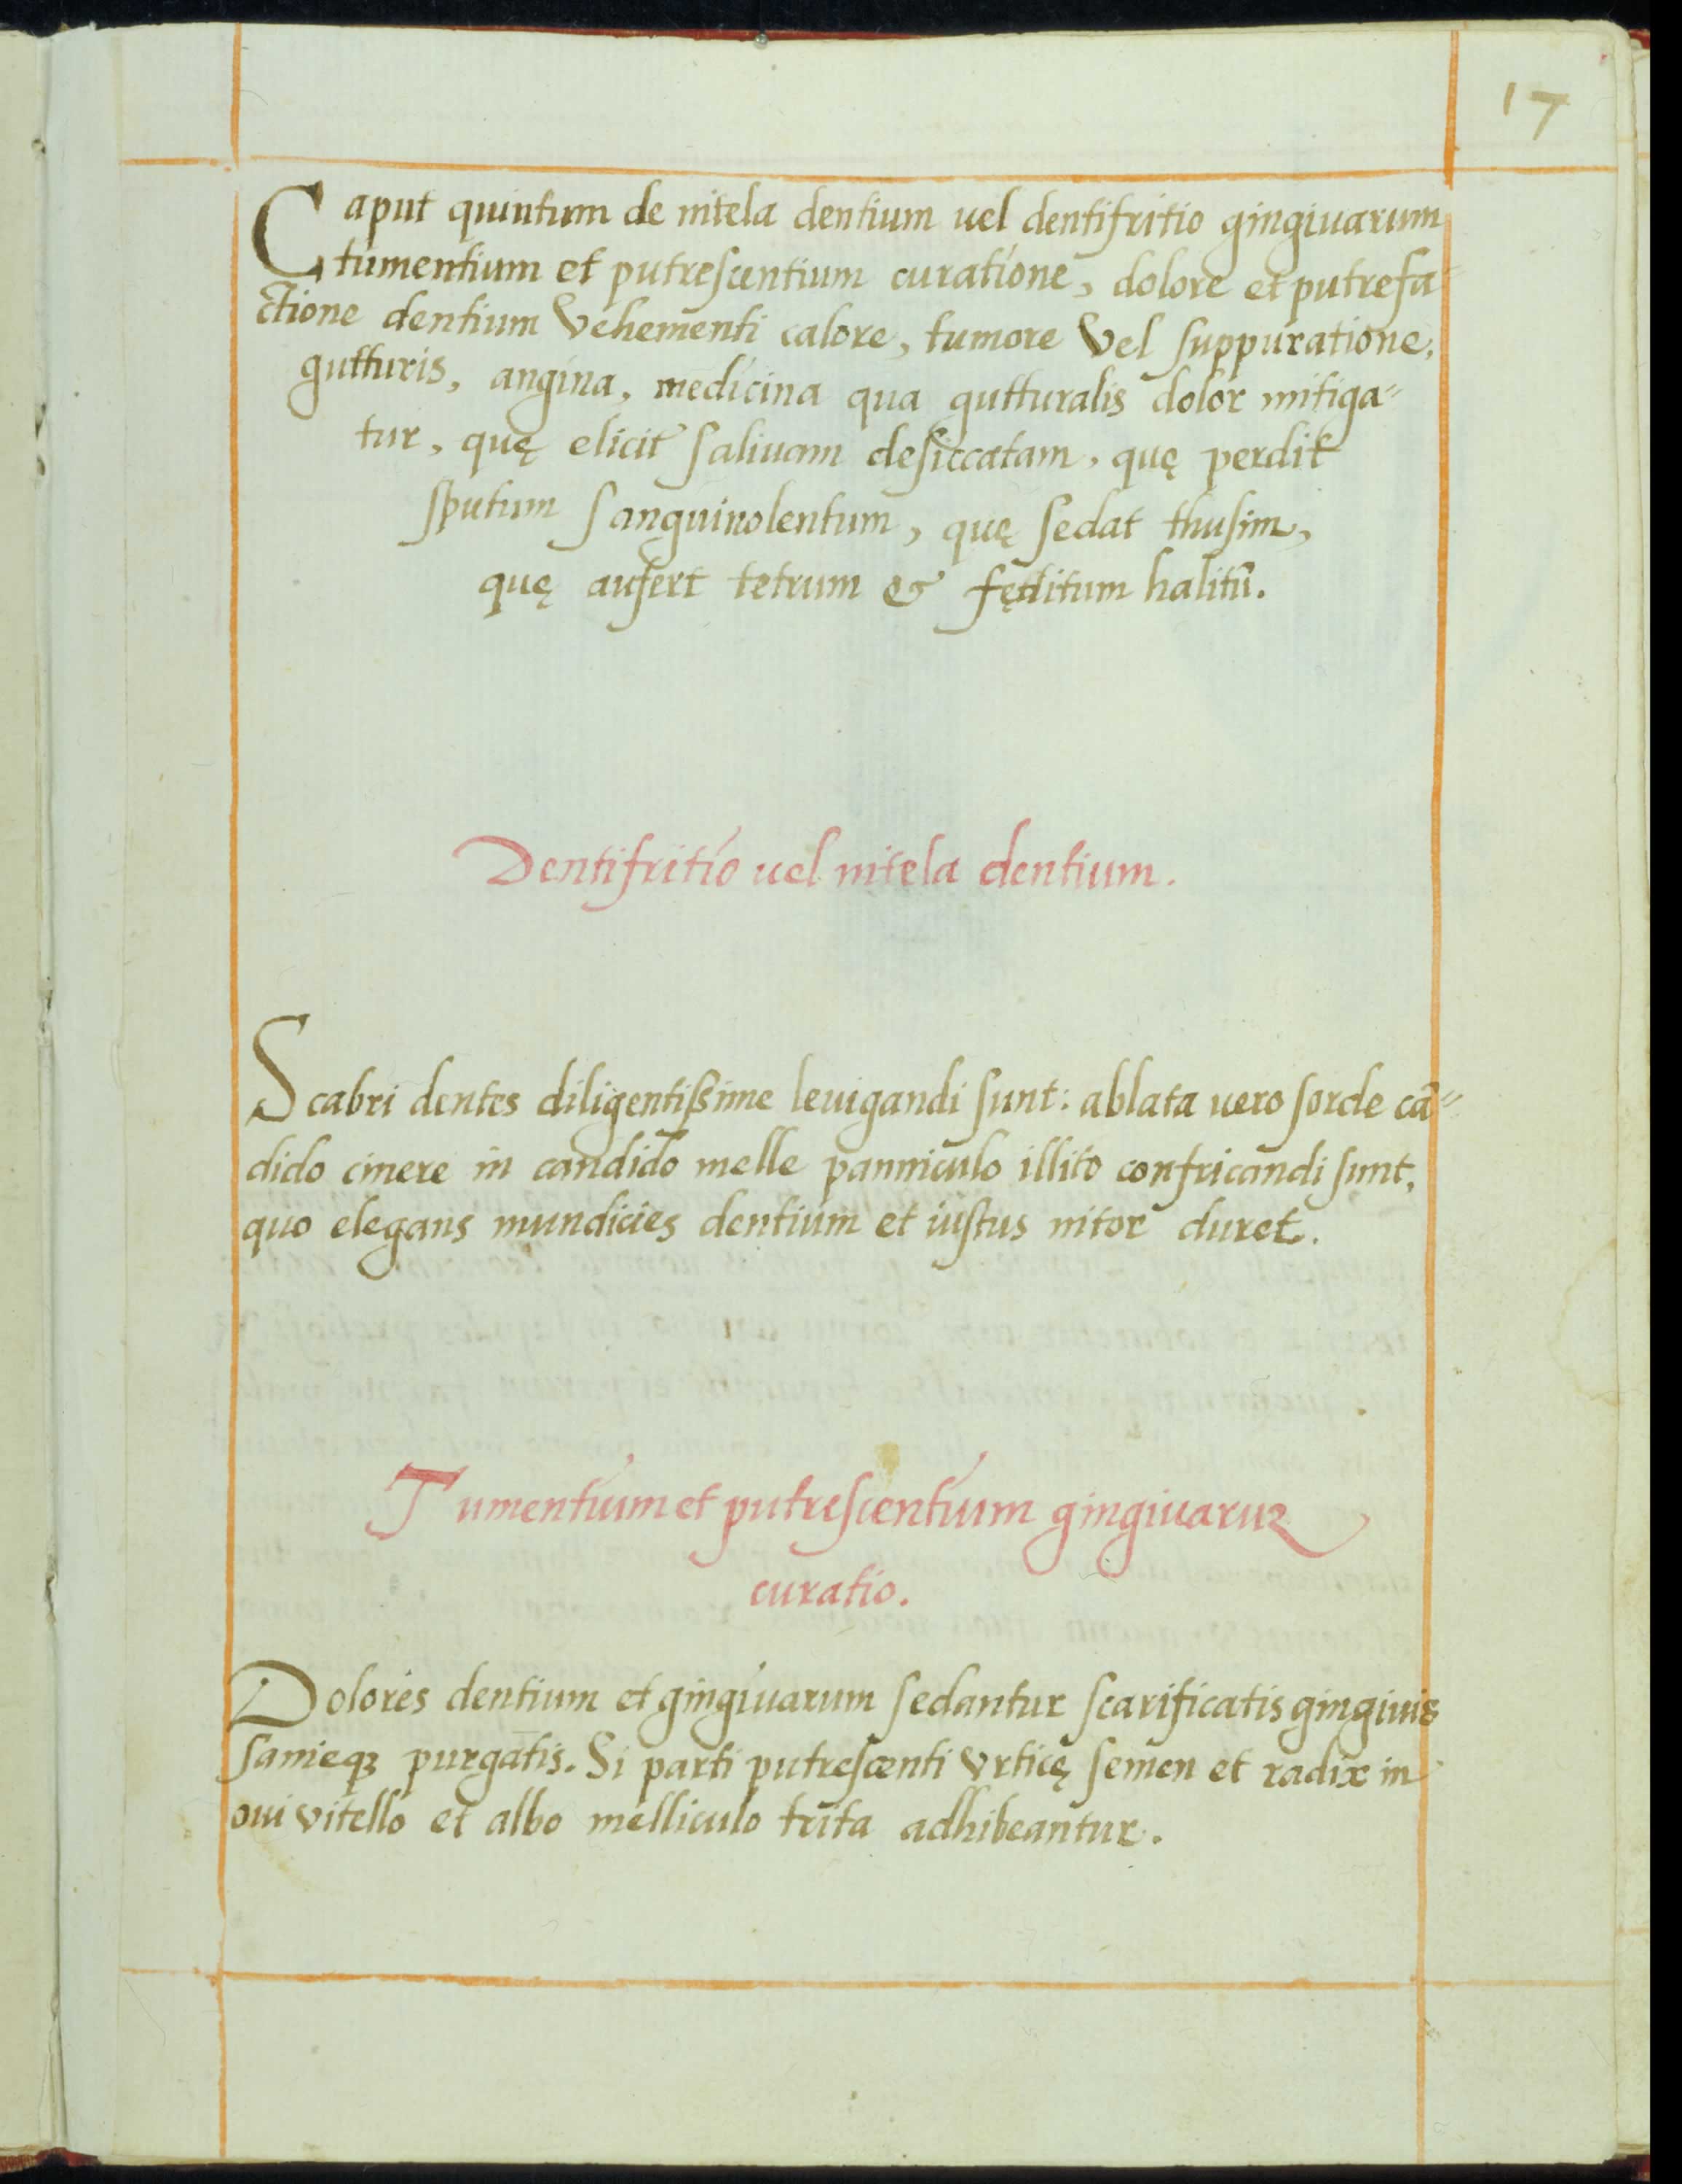 17
Caput quintum de nitela dentium uel dentifritio gingiuarum
tumentium et putrescentium curatione, dolore et putrefa-
ctione dentium Vehementi calore, tumore Vel suppuratione,
gutturis, angina, medicina qua gutturalis dolor mitiga-
tur, quę elicit saliuam desiccatam, quę perdit
sputum sanguinolentum, quę sedat thusim,
quę aufert tetrum & fętitum halitū.
Dentifritio uel nitela dentium.
Scabri dentes diligentissime leuigandi sunt: ablata uero sorde cā-
dido cinere in candido melle panniculo illito confricandi sunt,
quo elegans mundicies dentium et iustus nitor duret.
Tumentium et putrescentium gingiuaruz
curatio.
Dolores dentium et gingiuarum sedantur scarificatis gingiuis
sanieqꝫ purgatis. Si parti putrescenti Vrticę semen et radix in
oui vitello et albo melliculo trita adhibeantur.